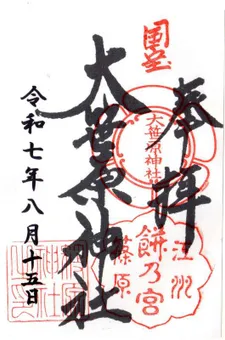 奉拝
国宝
大笹原神社
大笹原神社
江州
餅乃宮
篠原
令和七年八月十五日